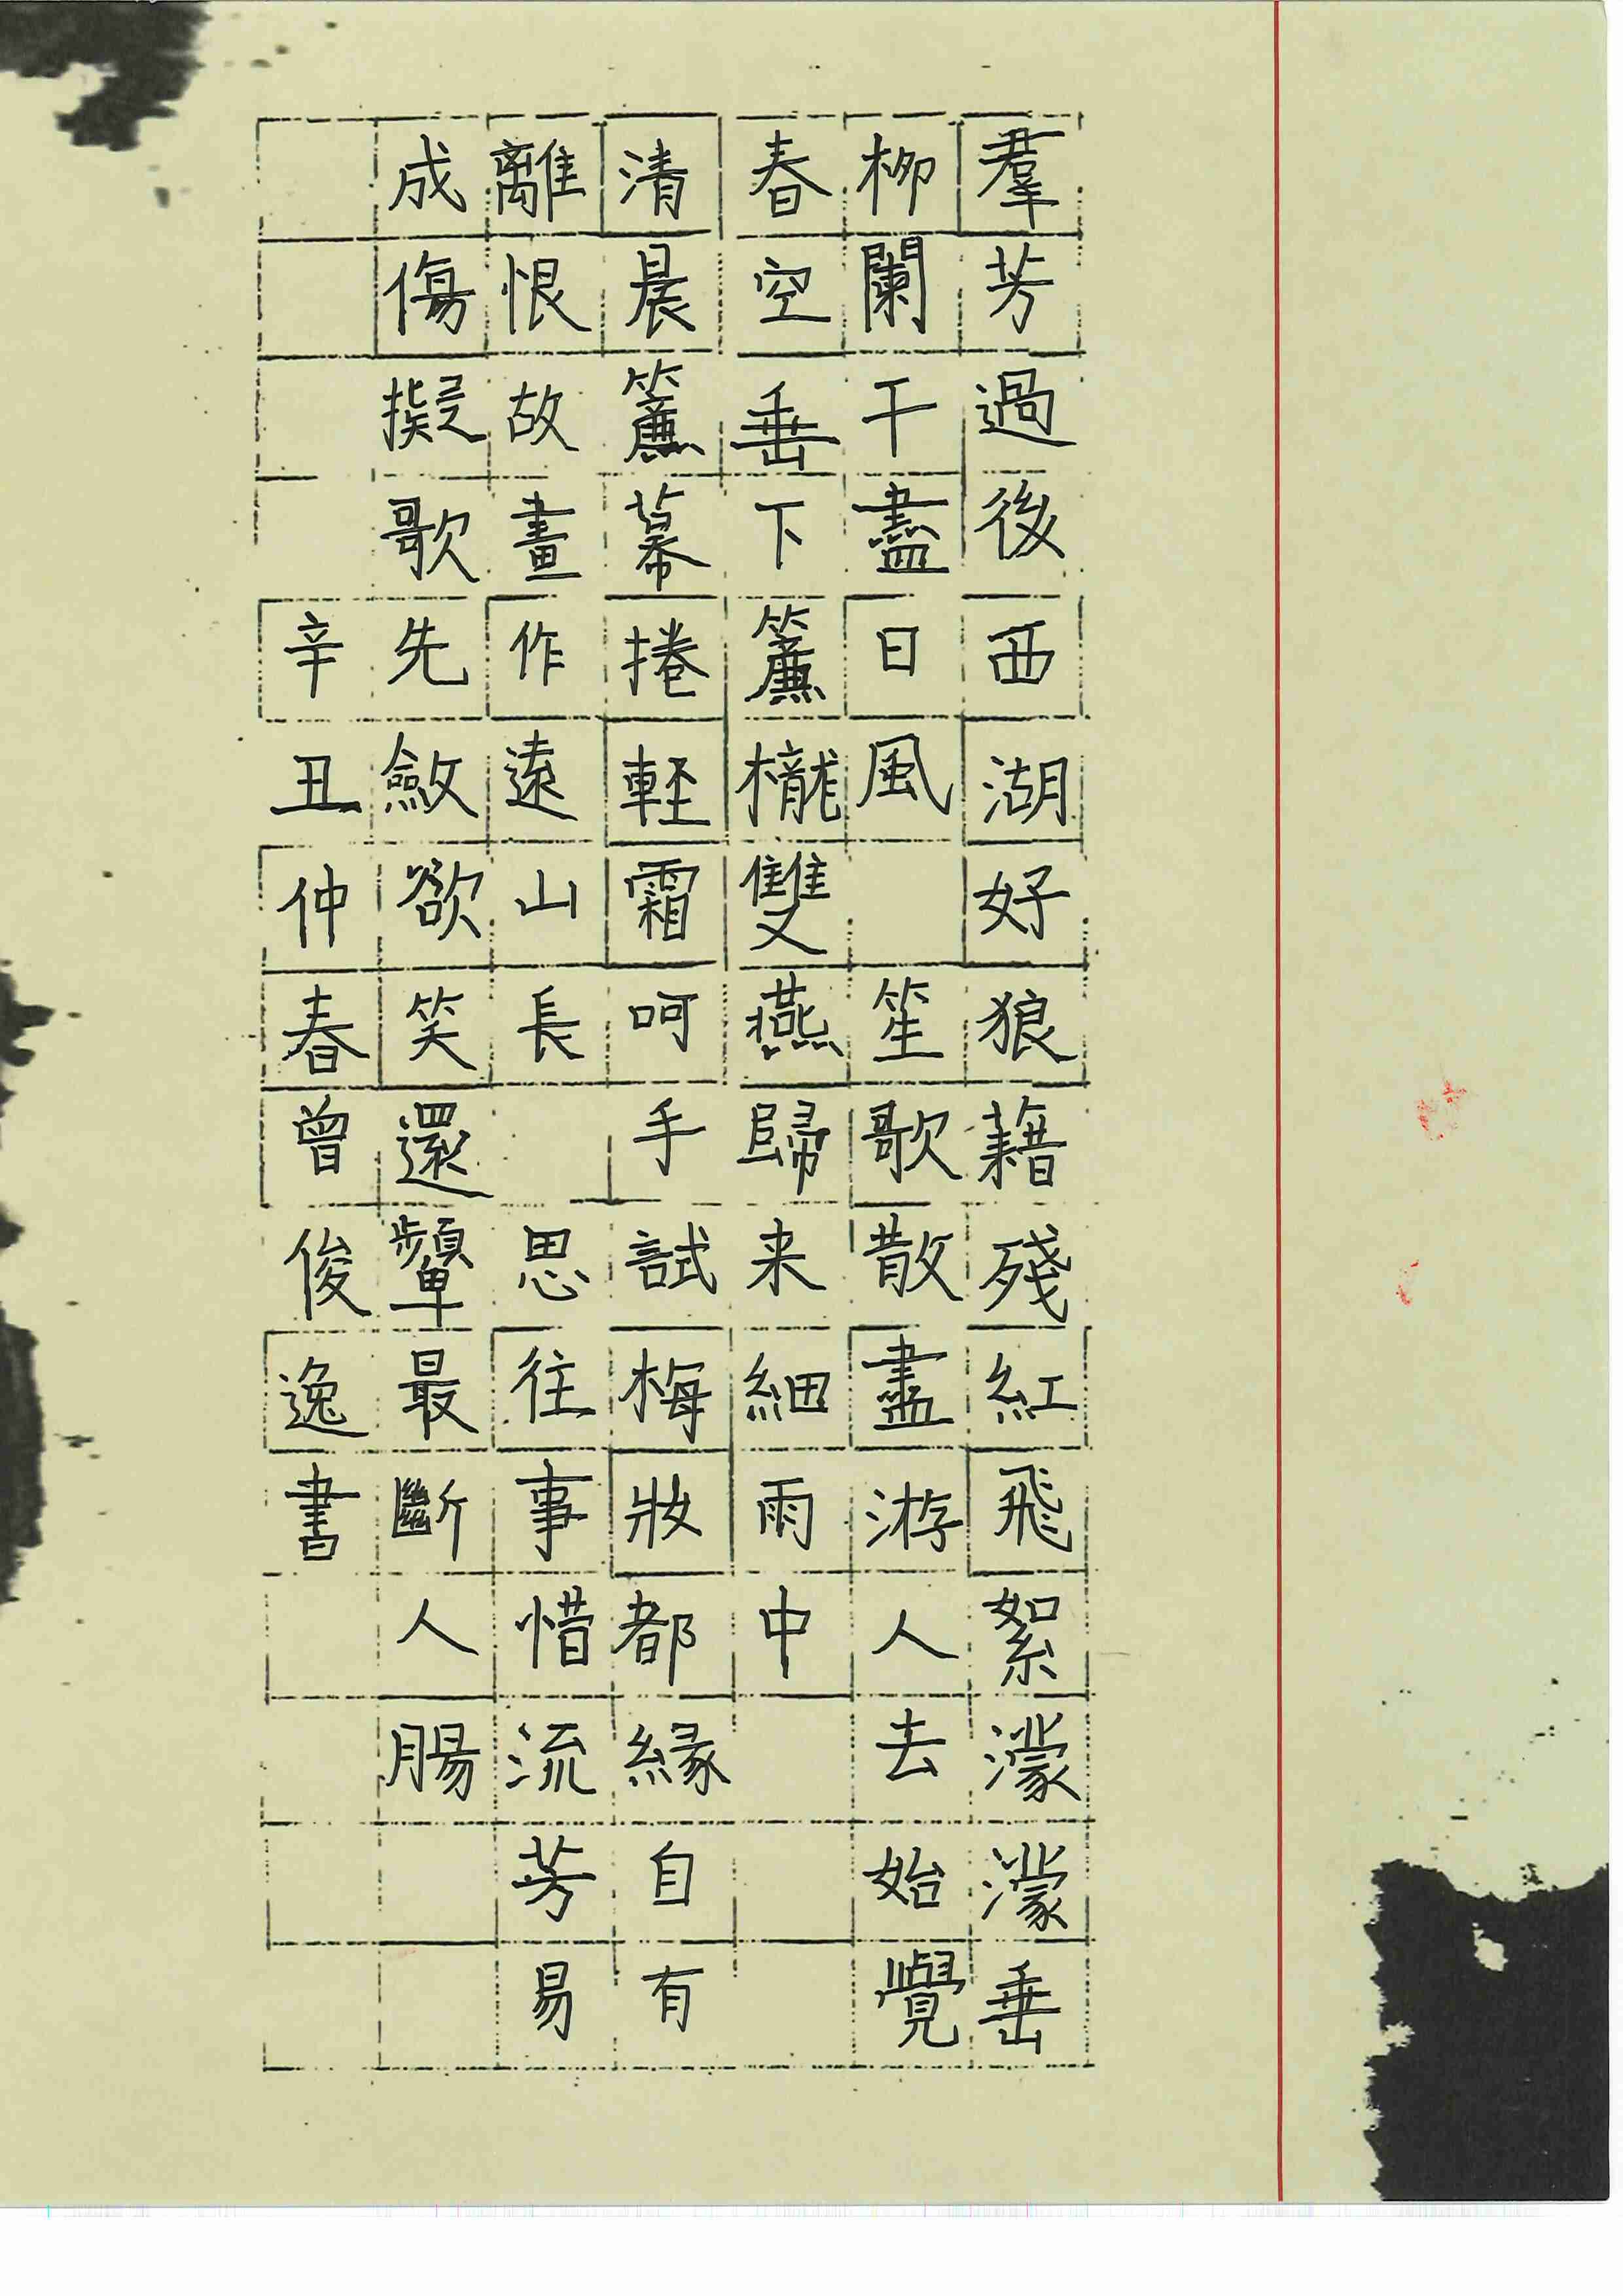 羣芳過後西湖好狼藉殘紅飛絮濛濛垂
柳闌干盡日風　笙歌散盡游人去始覺
春空垂下簾櫳雙燕歸来細雨中
清晨簾幕捲輕霜呵手試梅妝都緣自有
離恨故畫作遠山長　思往事惜流芳易
成傷擬歌先斂欲笑還顰最斷人腸
辛丑仲春曾俊逸書